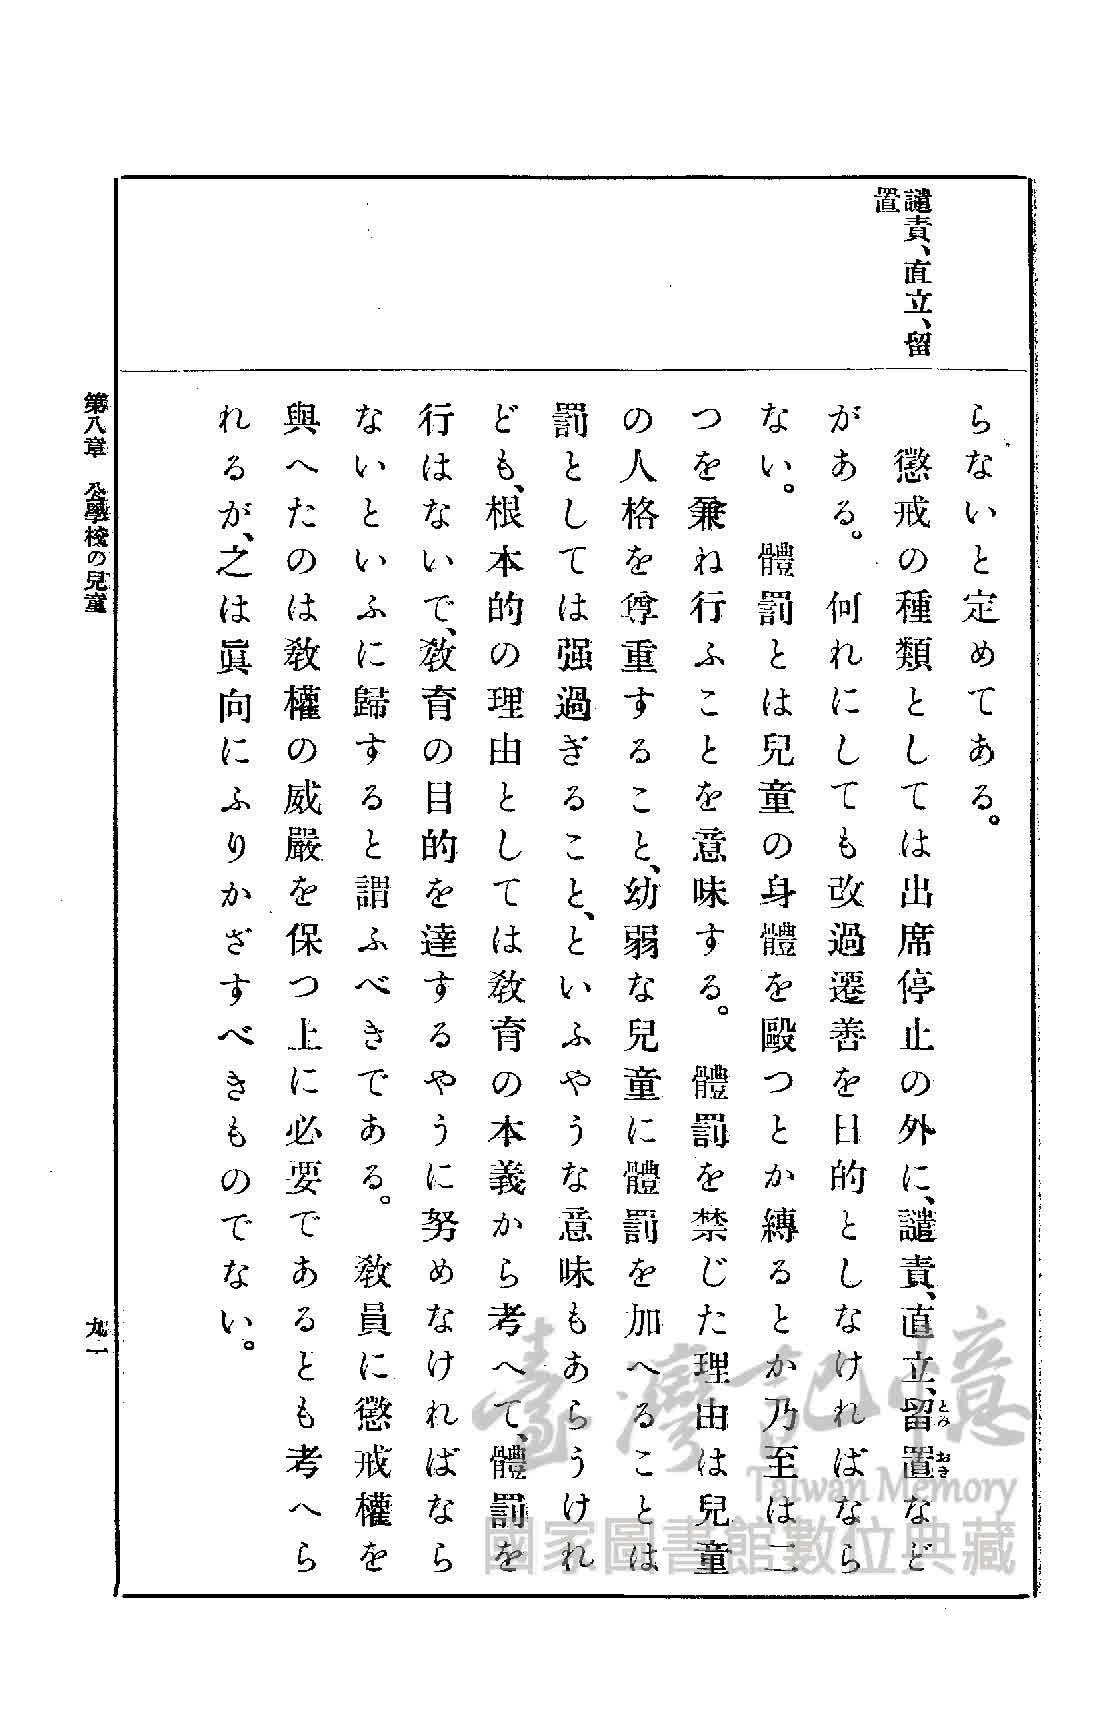 譴責、直立、留
置
らないと定めてある。
懲戒の種類としては出席停止の外に、譴責、直立、留置など
とめ おき
がある。何れにしても改過遷善を目的としなければなら
ない。體罰とは兒童の身體を毆つとか縛るとか乃至は二
つを兼ね行ふことを意味する。體罰を禁じた理由は兒童
の人格を尊重すること、幼弱な兒童に體罰を加へることは
罰としては强過ぎること、といふやうな意味もあらうけれ
ども、根本的の理由としては敎育の本義から考へて、體罰を
行はないで、敎育の目的を達するやうに努めなければなら
ないといふに歸すると謂ふべきである。敎員に懲戒權を
與へたのは敎權の威嚴を保つ上に必要であるとも考へら
れるが、之は眞向にふりかざすべきものでない。
第八章 公學校の兒童
九一
臺灣記憶
Taiwan Memory
國家圖書館數位典藏